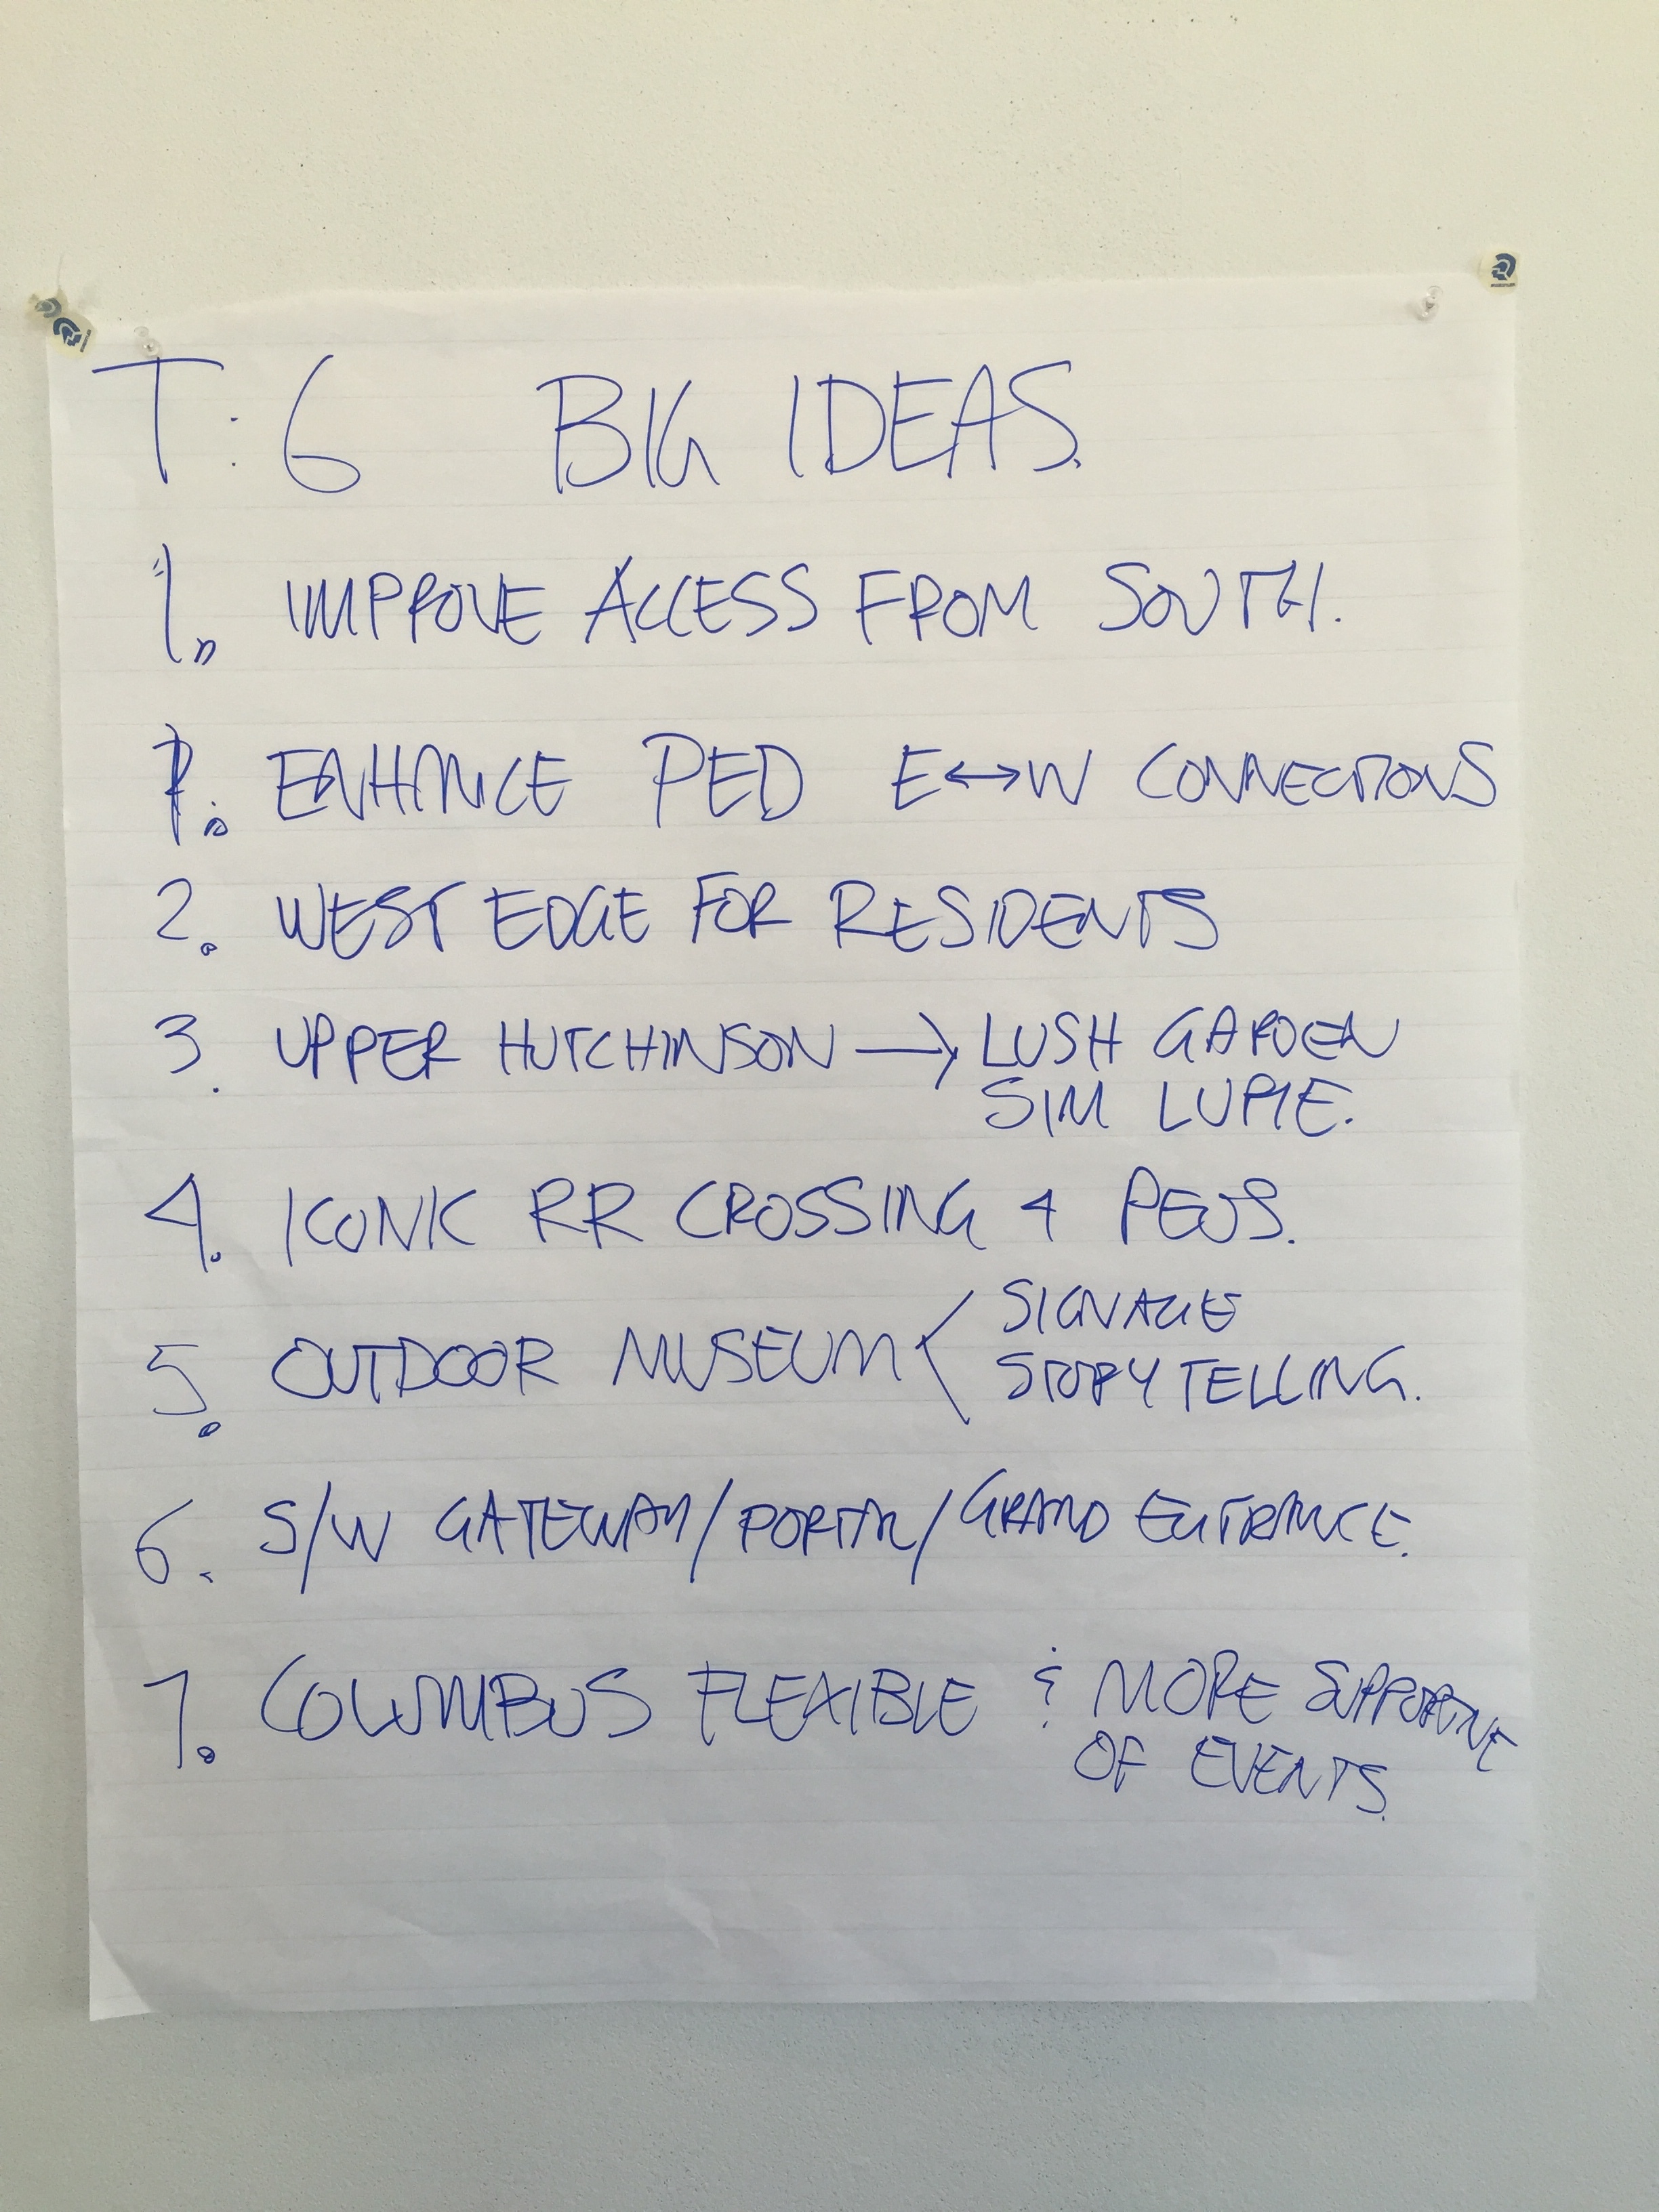 T: 6 BIG IDEAS.
1. IMPROVE ACCESS FROM SOUTH.
1. ENHANCE PED E↔W CONNECTIONS
2. WEST EDGE FOR RESIDENTS
3. UPPER HUTCHINSON → LUSH GARDEN
SIM LURIE.
4. ICONIC RR CROSSING 4 PEDS.
5. OUTDOOR MUSEUM < SIGNAGE
STORY TELLING.
6. S/W GATEWAY/PORTAL/GRAND ENTRANCE.
7. COLUMBUS FLEXIBLE & MORE SUPPORTIVE
OF EVENTS.